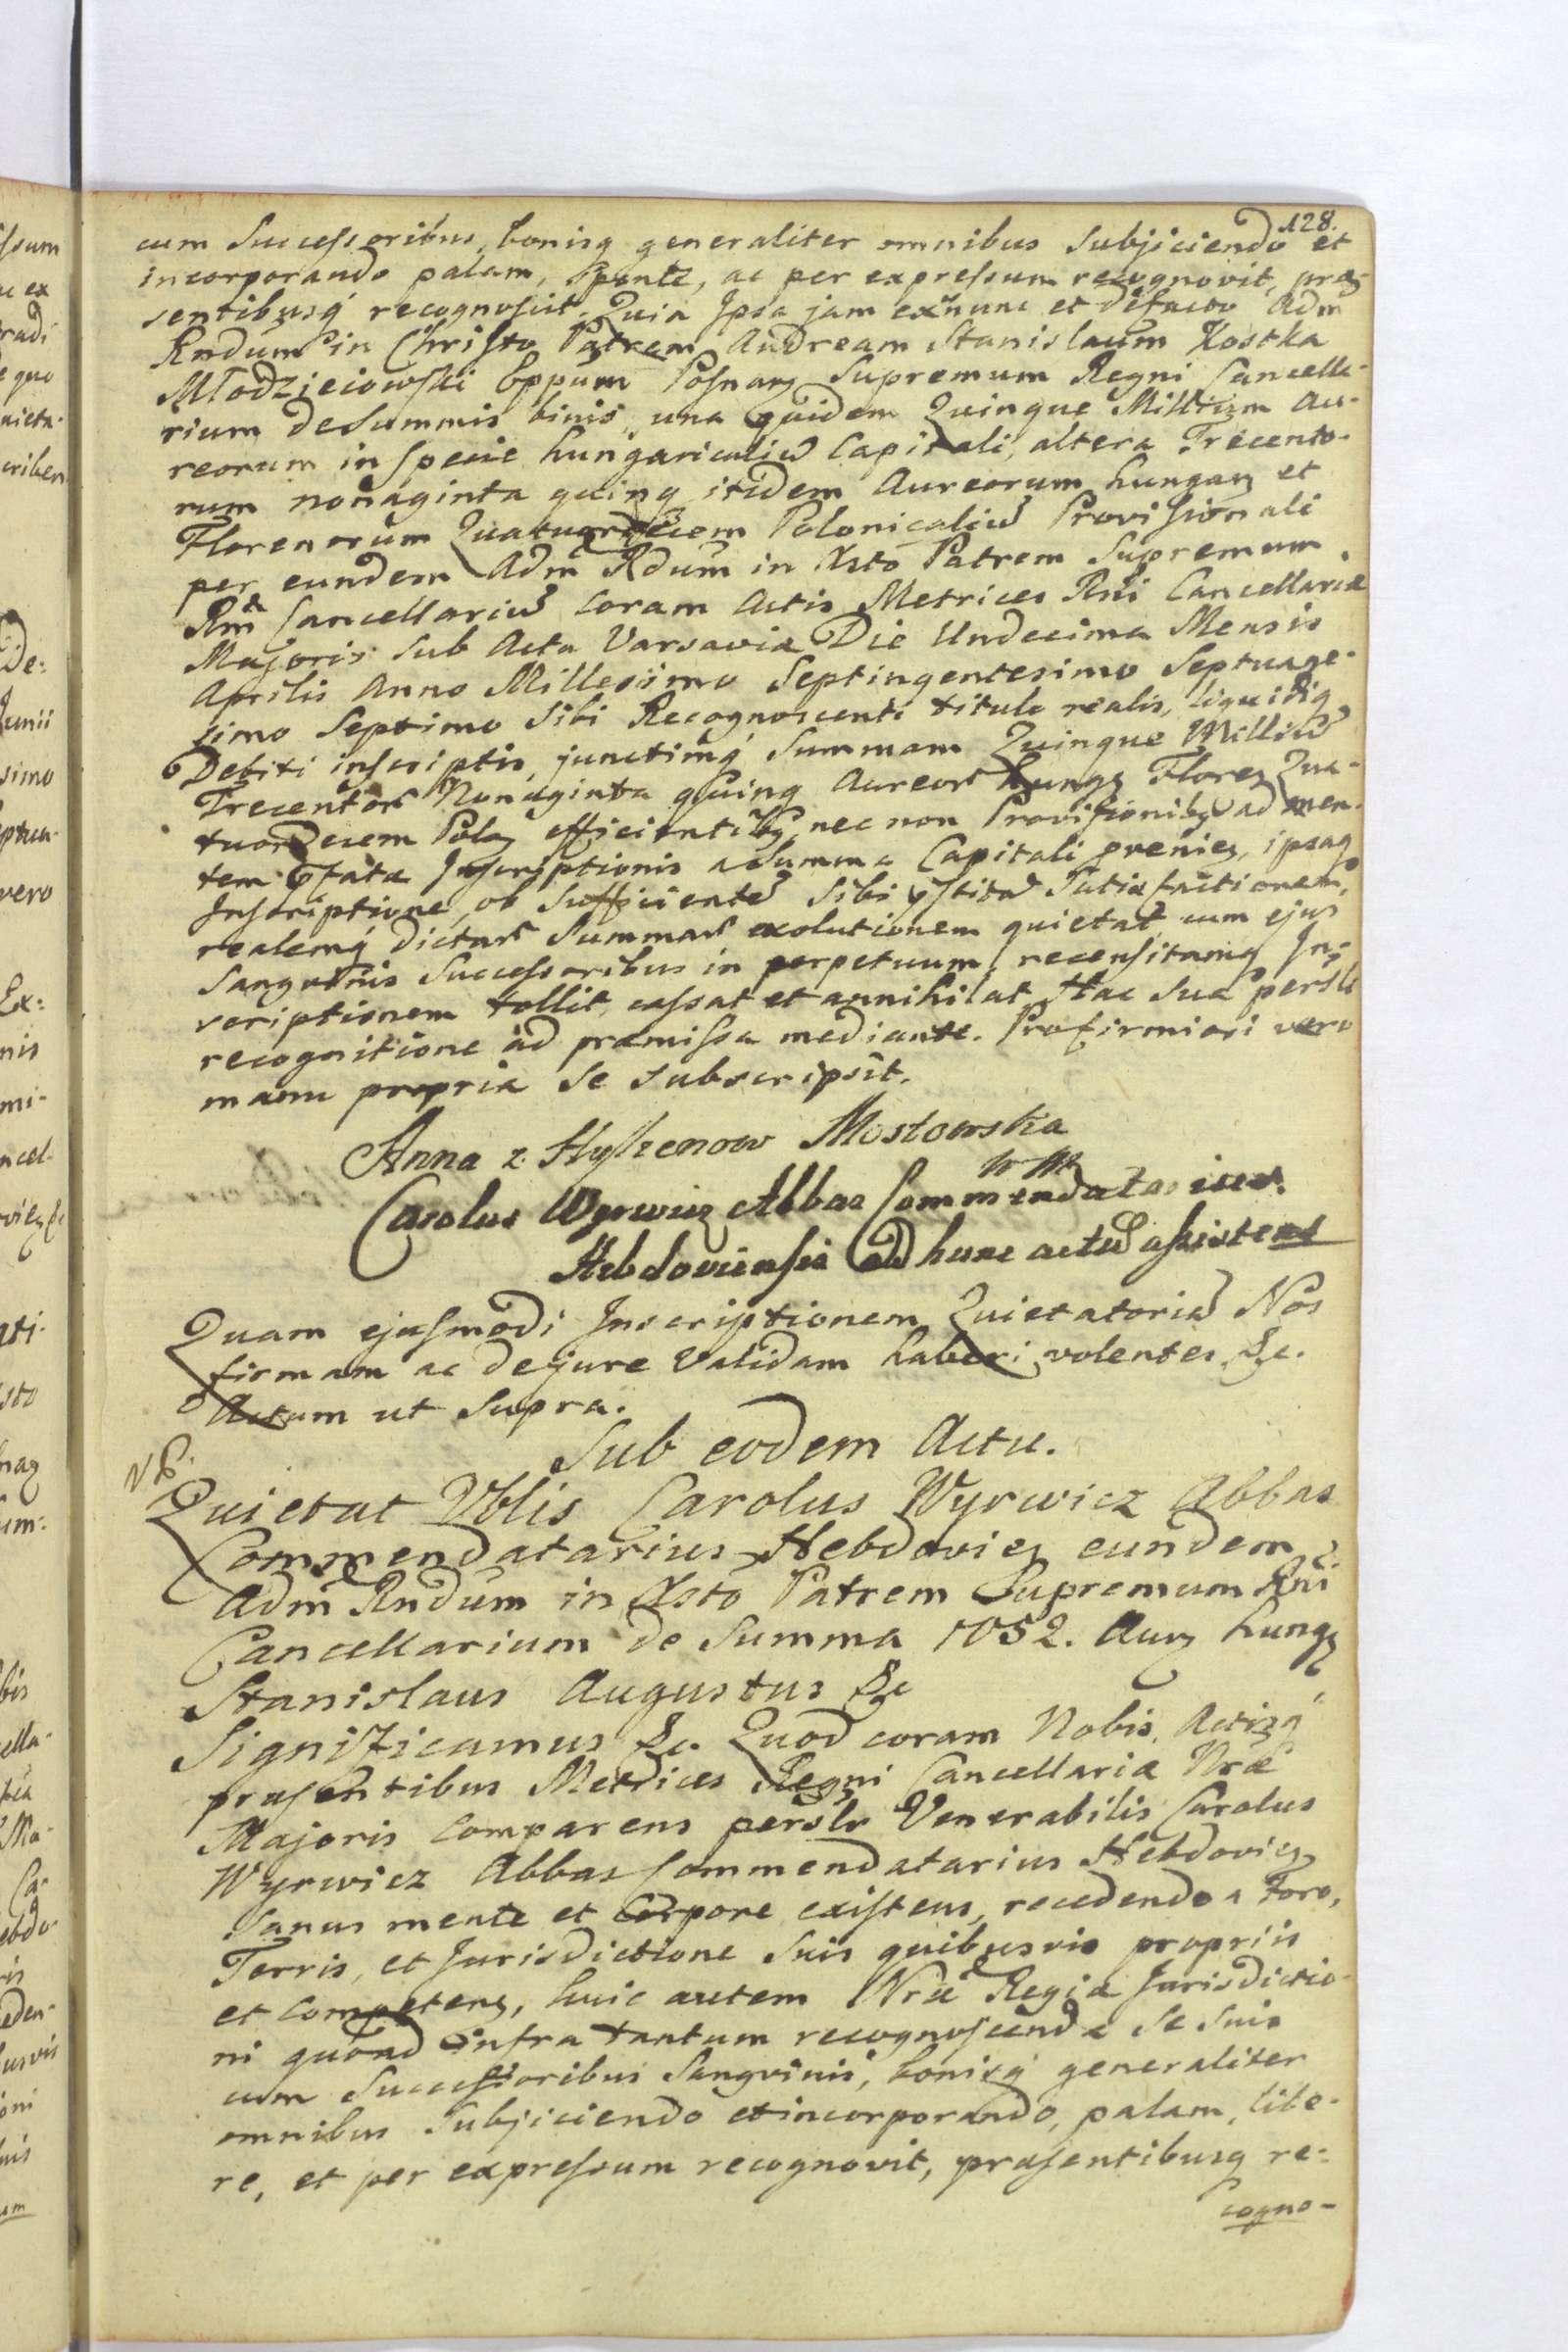 128.
cum Successoribus, bonisq generaliter omnibus subjiciendo et
incorporando palam, sponte, ac per expressum recognovit, præ-
sentibusq́ recognoscit. Quia Ipsa jam exnunc et defacto Adm̃
Rndum in Christo Patrem Andream Stanislaum Kostka
Młodzieiowski Eppum Posnaꝝ Supremum Regni Cancella-
rium de Summis binis, una quidem Quinque Millium Au-
reorum in specie hungaricaliũ Capitali, altera Trecento-
rum nonaginta quinq itidem Aureorum hungaꝝ et
Florenorum Quatuordecem Polonicaliũ Provisionali
per eundem Adm̃ Rdum in Xsto Patrem Supremum
Rni Cancellariũ coram Actis Metrices Rni Cancellariæ
Majoris sub Acta Varsaviæ Die Undecima Mensis
Aprilis Anno Millesimo Septingentesimo Septuage-
simo Septimo Sibi Recognoscenti titulo realis, liquidiq
Debiti inscriptis, junctimq́ Summam Quinque Milliũ
Trecentor̃ Nonaginta quinq Aureor̃ hungꝝ Floreꝝ Qua-
tuordecem Poloꝝ efficientibꝫ, nec non Provisionibꝫ ad men-
tem pfatæ Inscriptionis a Summa Capitali provenieꝝ, ipsaq
Inscriptione, ob sufficientẽ Sibi pstitã Satisfactionem,
realemq́ dictar̃ Summar̃ exolutionem quietat cum ejus
Sangvinis Successoribus in perpetuum, recensitamq In-
scriptionem tollit, cassat et annihilat Hac Sua persli
recognitione ad præmissa mediante. Pro firmiori vero
manu propria se subscripsit.
Anna z Hylzenow Mostowska
Carolus Wyrwicz Abbas Commendatarius
Hebdoviensis ad hunc actũ assistens
Quam ejusmodi Inscriptionem Quietatoriã Nos
firmam ac dejure Validam haberi volentes &c.
Actum ut Supra.
Sub eodem Actu.
NB.
Quietat Vblis Carolus Wyrwicz Abbas
Commendatarius Hebdovieꝝ eundem
Adm̃ Rndum in Xsto Patrem Supremum Rni
Cancellarium de Summa 1052. Aurꝝ hungꝝ
Stanislaus Augustus &c
Significamus &c. Quod coram Nobis, Actisq́
præsentibus Metrices Regni Cancellariæ Nræ
Majoris Comparens perslr Venerabilis Carolus
Wyrwicz Abbas Commendatarius Hebdovieꝝ
sanus mente et Corpore existens, recedendo a Foro,
Terris, et Jurisdictione suis quibusvis propriis
et competenꝝ, huic autem Nræ Regiæ Jurisdictio-
ni quoad infra tantum recognoscenda se suis
cum Successoribus Sangvinis, bonisq́ generaliter
omnibus Subjiciendo et incorporando, palam, libe-
re, et per expressum recognovit, præsentibusq re-
cogno-